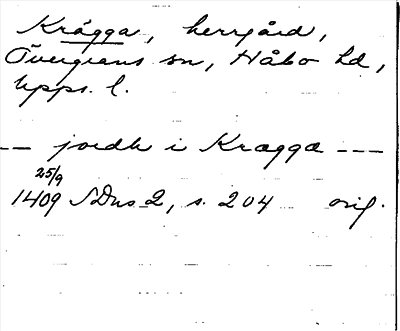 Krägga, herrgård,
Övergrans sn, Håbo hd,
Upps. l.
-- jordh i Kragga ---
25/9
1409 SDns 2, s. 204 orig.